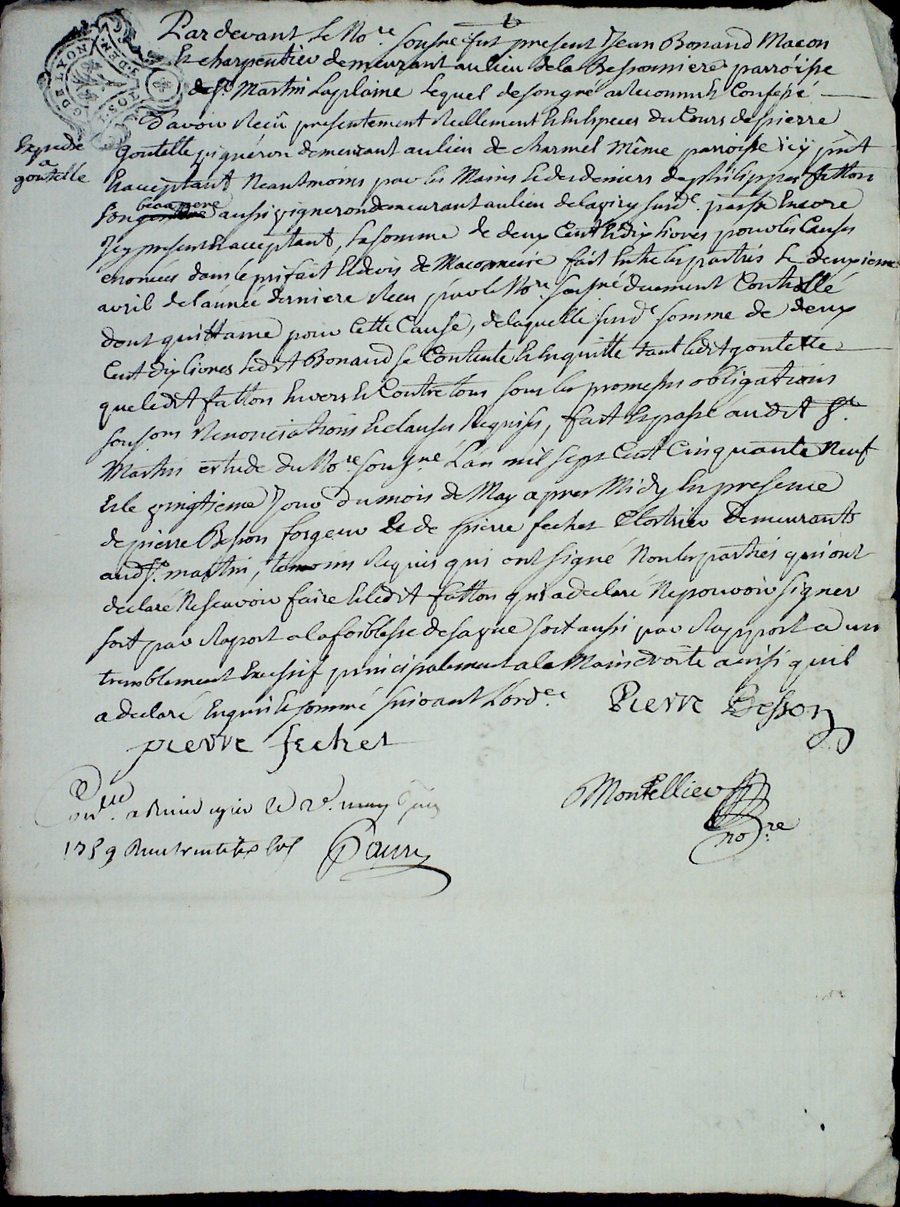 GDE LYON
2 DEN.
Par devant le No.re sousné fut present Jean Bonand Macon
Et charpentier demeurant au lieu de la Bessonniere parroisse
de St. Martin Laplaine Lequel de son gré a Reconnu Et Confessé
D'avoir Receu presentement Reellement Et En Especes du Cours de pierre
Goutelle vigneron demeurant au lieu de charmel Même parroisse icy pnt
Expedié
a
goutelle
Et acceptant Neantmoins par les Mains Et de deniers de philippe fatton
beaupere
son aussi vigneron demeurant au lieu de susd.e parsse Encore
Icy present Et acceptant, La somme de deux Cent Et dix livres pour les Causes
enoncées dans le prifait Et devis de Maconnerie fait Entre les parties Le deuxieme
avril de l'année derniere Receu par le No.re sousné duement Controllé
dont quittance pour Cette Cause, de laquelle susd.e somme de deux
Cent dix livres Ledit Bonand se Contente Et En quitte tant ledit goutelle
que ledit fatton Envers Et Contre tous sous les promesses obligations
soumons Renonciations Et clauses Requises, fait Et passé audit St.
Martin etude du No.re sousg.né L'an mil sept Cent Cinquante Neuf
Et le vingtieme Jour du mois de May apres Midy En presence
de pierre Besson forgeur Et de pierre fechet Cloutrier Demeurants
aud. St. martin, temoins Requis qui ont signé Non les parties qui ont
declaré Ne scavoir faire Et ledit fatton qui a declaré Ne pouvoir signer
soit par Raport a la foiblesse de sa vue soit aussi par Rapport a un
tremblement Excessif principalement a la Main droite ainsi qu'il
a declaré Enquis Et sommé suivant L'ord.ce
Pierre Besson
pierre fechet
Montellier
no.re
Con.llé a Rivedegier le may
1759 Receu